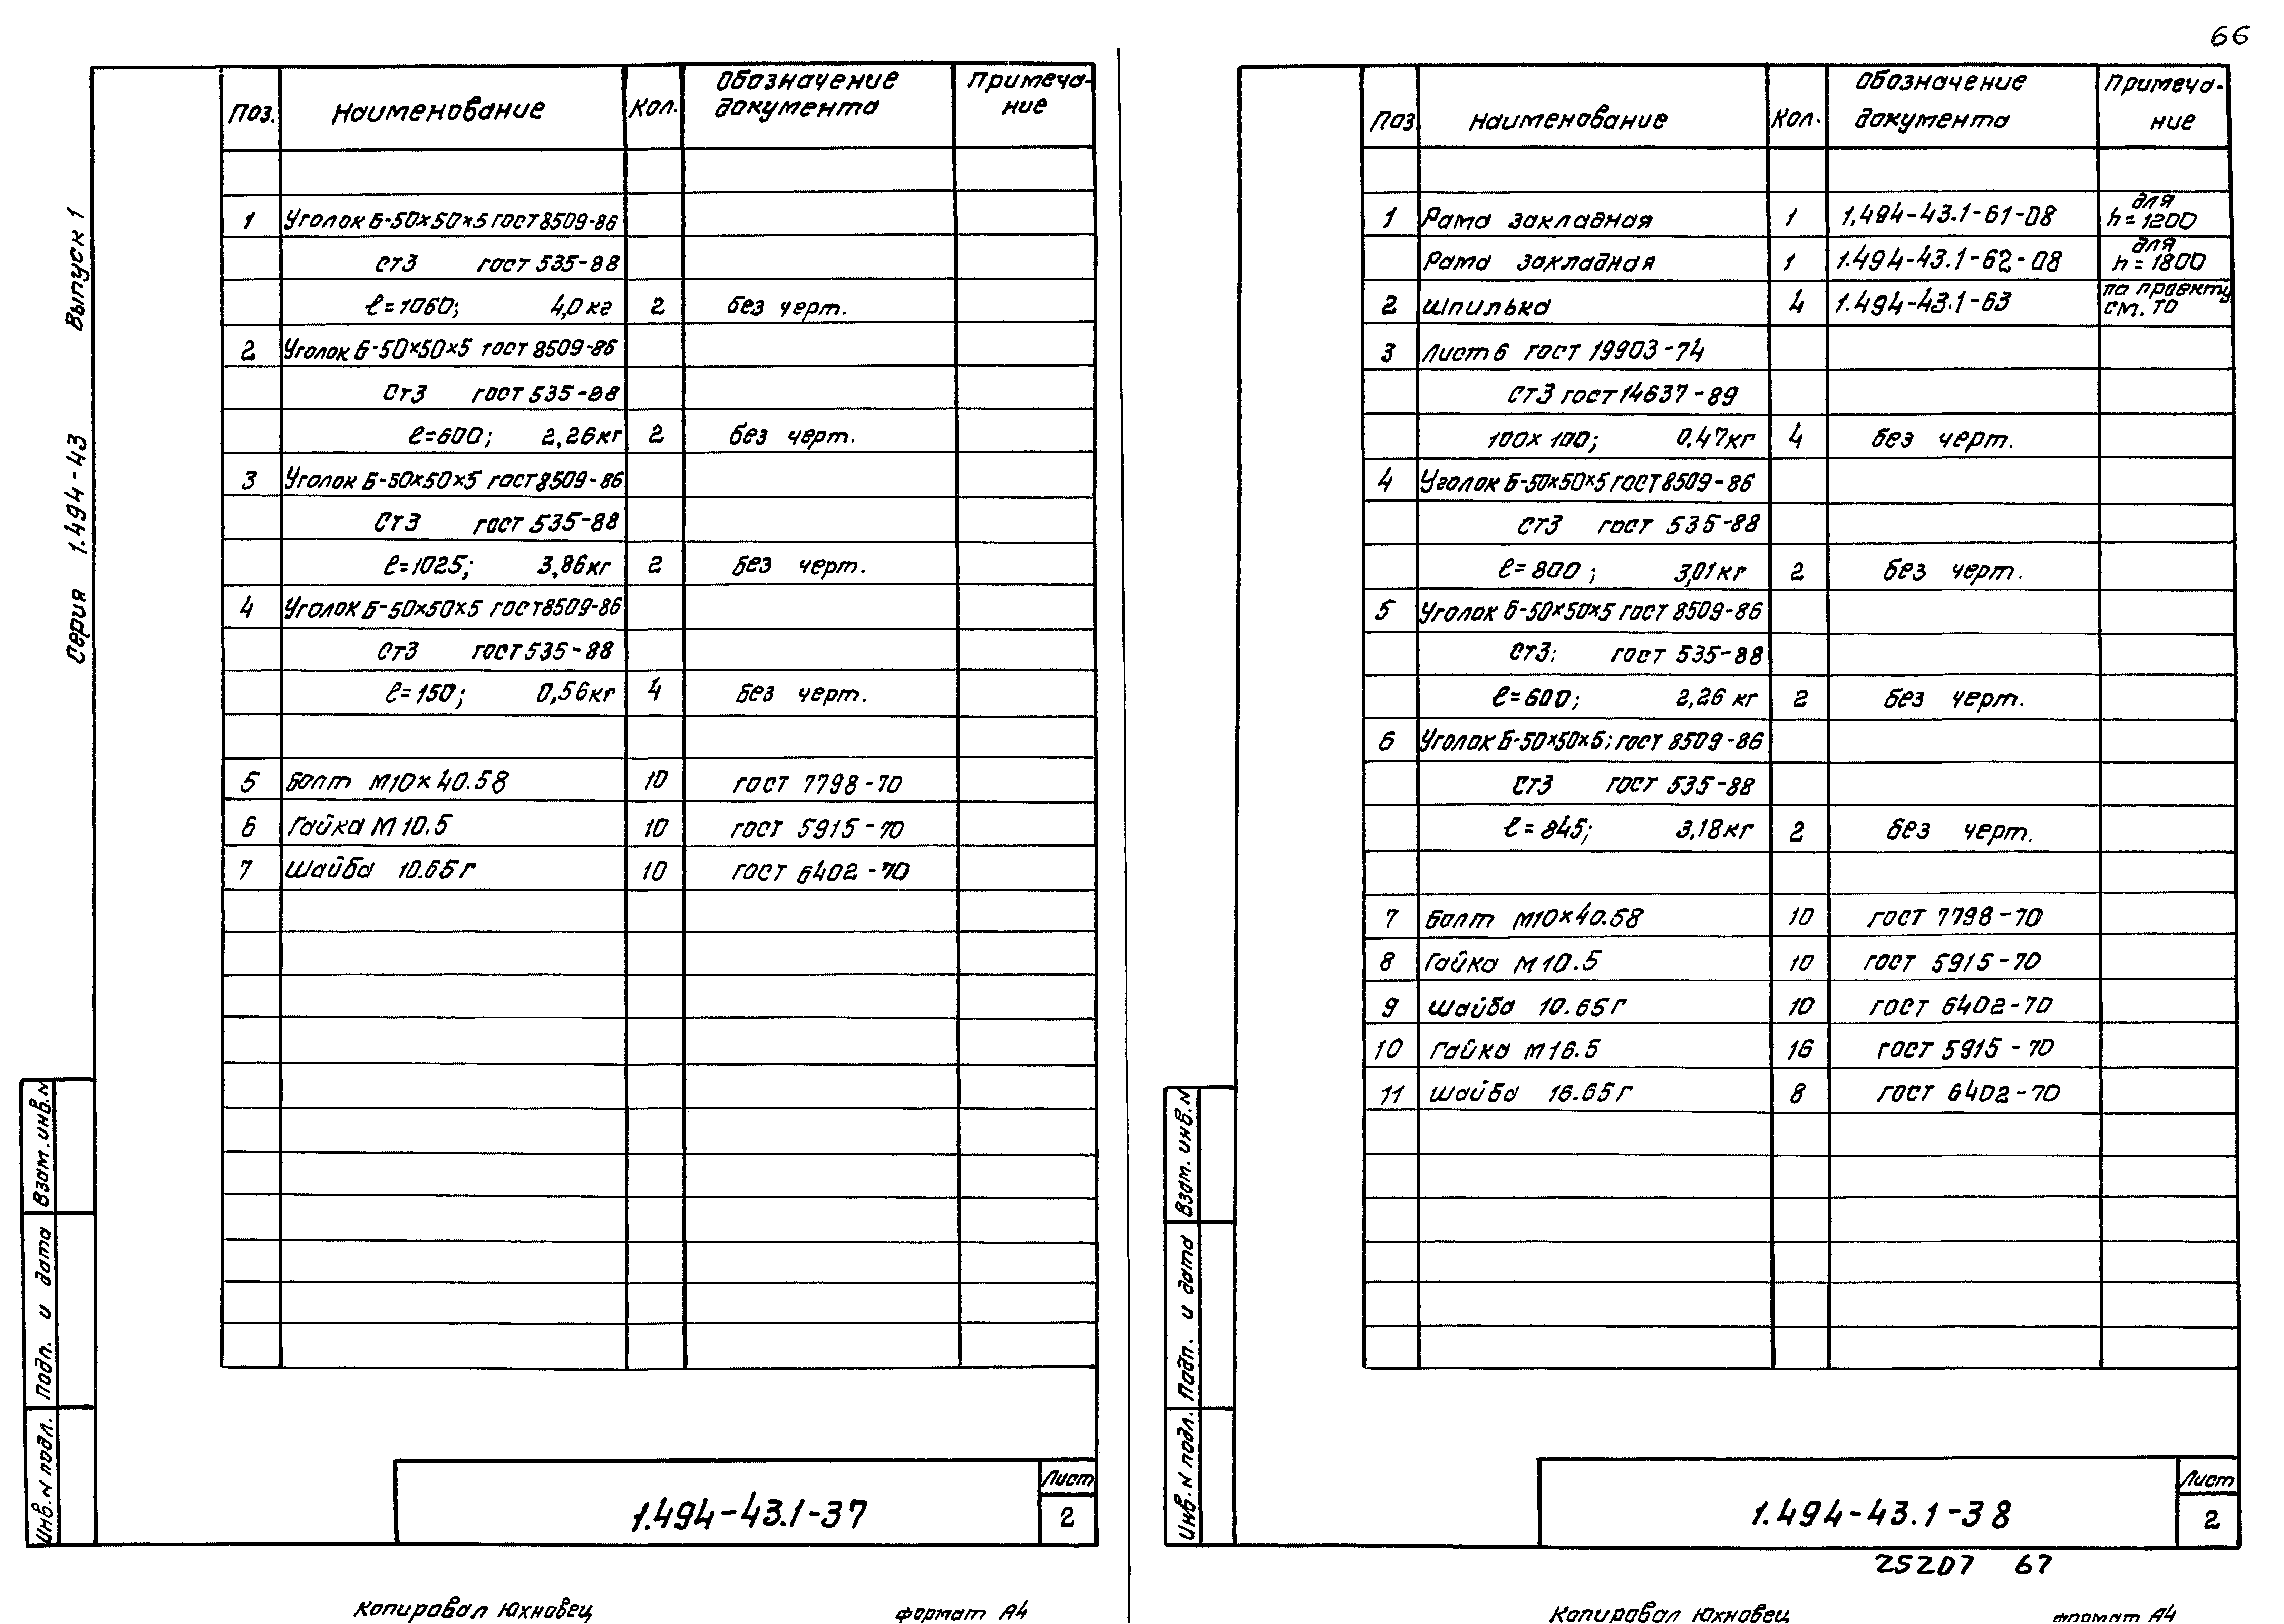 66
Серия 1.494-43 Выпуск 1
Поз. Наименование Кол. Обозначение документа Примеча-ние
1 Уголок Б-50×50×5 гост 8509-86
Ст3 гост 535-88
ℓ=1060; 4,0 кг 2 без черт.
2 Уголок Б-50×50×5 гост 8509-86
Ст3 гост 535-88
ℓ=600; 2,26кг 2 без черт.
3 Уголок Б-50×50×5 гост 8509-86
Ст3 гост 535-88
ℓ=1025; 3,86кг 2 без черт.
4 Уголок Б-50×50×5 гост 8509-86
Ст3 гост 535-88
ℓ=150; 0,56кг 4 без черт.
5 Болт М10×40.58 10 гост 7798-70
6 Гайка М10.5 10 гост 5915-70
7 Шайба 10.65Г 10 гост 6402-70
Взам. инв. N
Подп. и дата
Инв. N подл.
1.494-43.1-37
Лист
2
Копировал Юхновец формат А4
Поз Наименование Кол. Обозначение документа Примеча-ние
1 Рама закладная 1 1.494-43.1-61-08 для h=1200
Рама закладная 1 1.494-43.1-62-08 для h=1800
2 Шпилька 4 1.494-43.1-63 по проекту см. ТО
3 Лист 6 гост 19903-74
Ст3 гост 14637-89
100×100; 0,47кг 4 без черт.
4 Уголок Б-50×50×5 гост 8509-86
Ст3 гост 535-88
ℓ=800; 3,01кг 2 без черт.
5 Уголок Б-50×50×5 гост 8509-86
Ст3; гост 535-88
ℓ=600; 2,26 кг 2 без черт.
6 Уголок Б-50×50×5; гост 8509-86
Ст3 гост 535-88
ℓ=845; 3,18кг 2 без черт.
7 Болт М10×40.58 10 гост 7798-70
8 Гайка М10.5 10 гост 5915-70
9 Шайба 10.65Г 10 гост 6402-70
10 Гайка М16.5 16 гост 5915-70
11 Шайба 16.65Г 8 гост 6402-70
Взам. инв. N
Подп. и дата
Инв. N подл.
1.494-43.1-38
Лист
2
25207 67
Копировал Юхновец формат А4